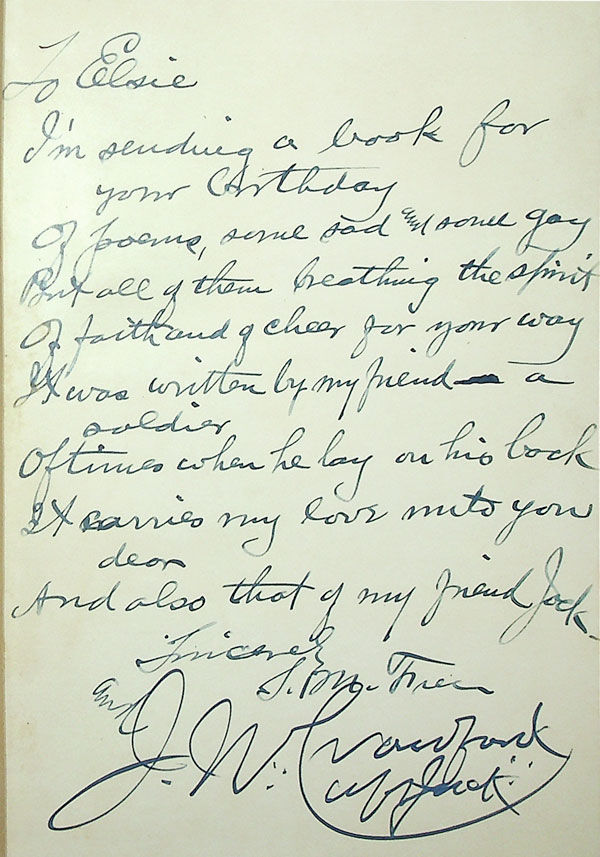 To Elsie
I'm sending a book for
your birthday
Of poems, some sad and some gay
But all of them breathing the spirit
Of faith and of cheer for your way
It was written by my friend a
soldier
Oftimes when he lay on his back
It carries my love unto you
dear
And also that of my friend Jack.
Sincerely
and
J. W. Crawford
Capt Jack.